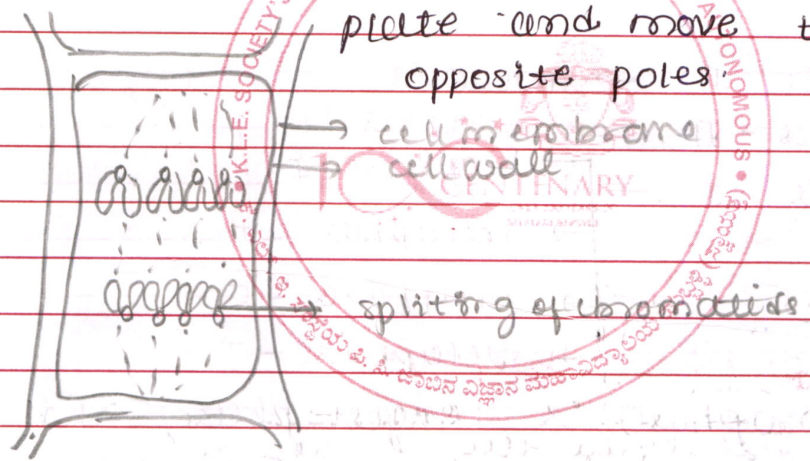 plate and move t
opposite poles.
cell membrane
cell wall
spliting of chromatids
K.L.E. SOCIETY'S
AUTONOMOUS
100 CENTENARY
ಪಿ. ಸಿ. ಜಾಬಿನ ವಿಜ್ಞಾನ ಮಹಾವಿದ್ಯಾಲಯ